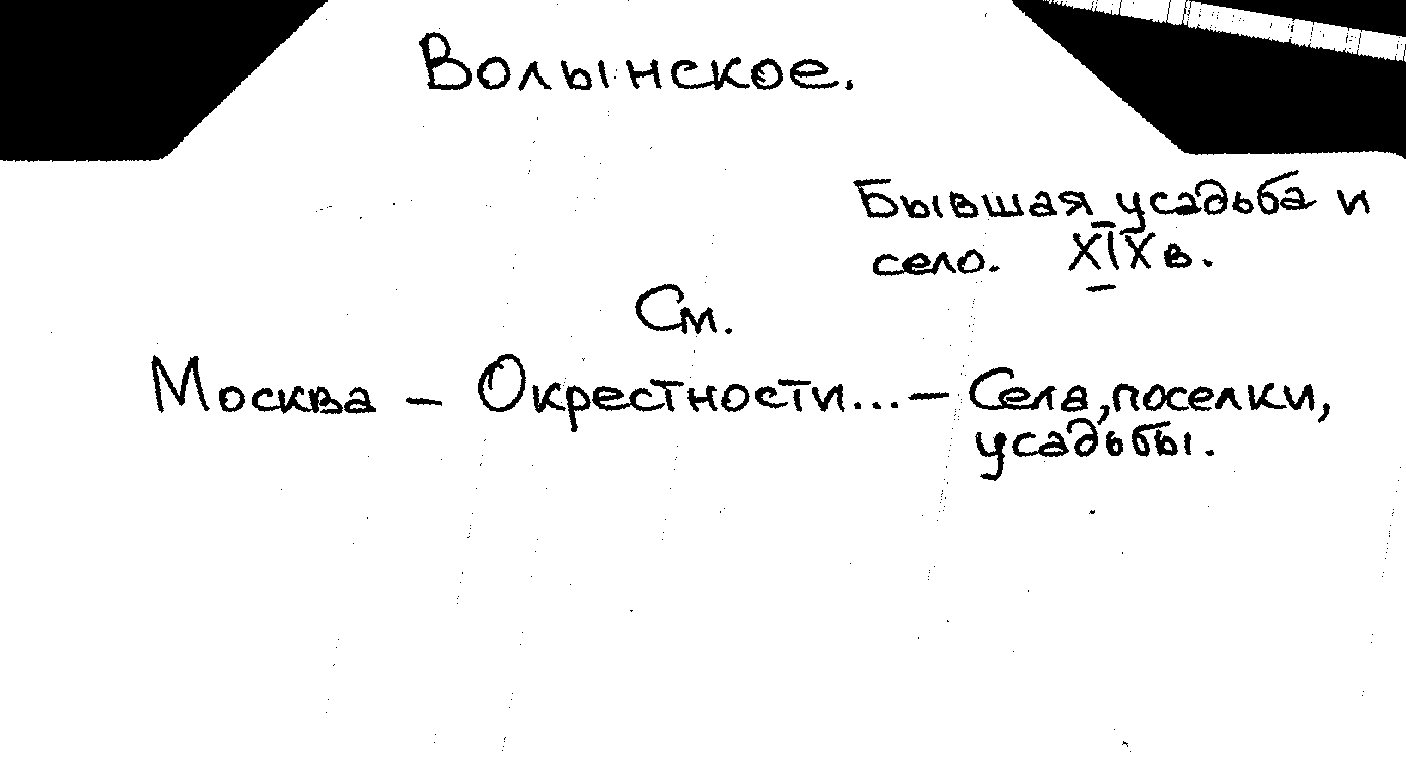 Волынское.
Бывшая усадьба и
село. XIX в.
См.
Москва – Окрестности... – Села, поселки,
усадьбы.